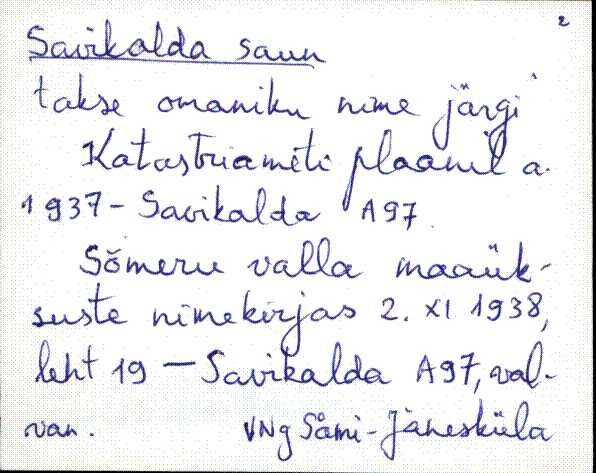 2
Savikalda saun
takse omaniku nime järgi
Katastriameti plaanil a.
1937 - Savikalda A97
Sõmeru valla maaük-
suste nimekirjas 2. XI 1938,
leht 19 - Savikalda A97, val-
van. VNg Sämi-Jänesküla